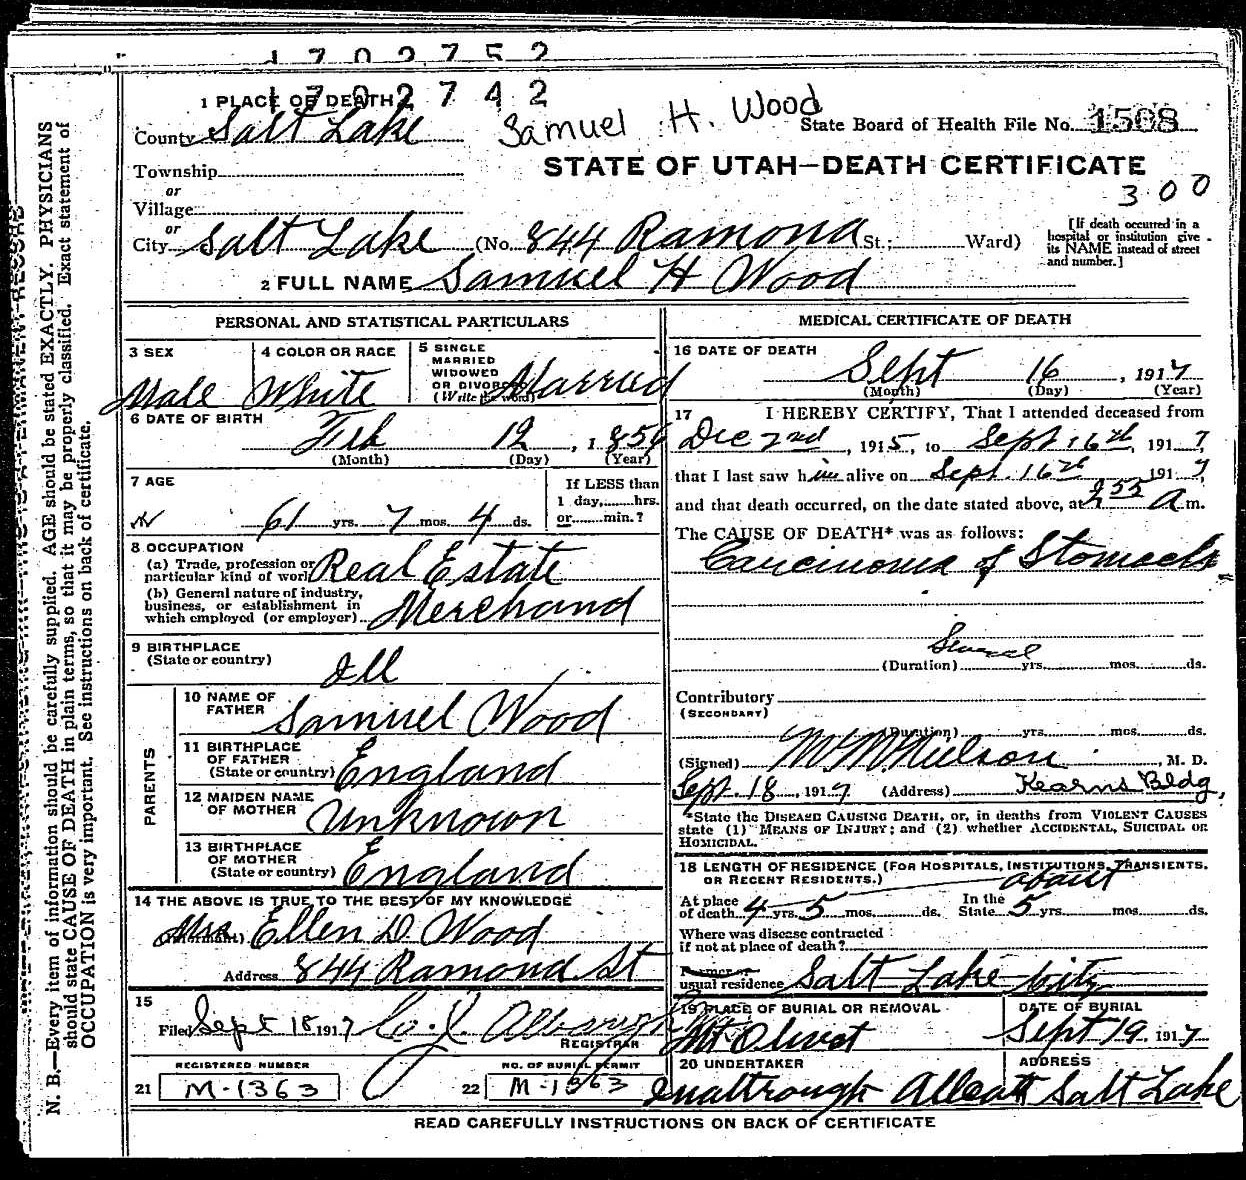 1702752
1702742
1 PLACE OF DEATH
County Salt Lake
Samuel H. Wood
State Board of Health File No. 1508
Township
STATE OF UTAH—DEATH CERTIFICATE
or
300
Village
or
City Salt Lake (No. 844 Ramona St.; Ward)
[If death occurred in a
hospital or institution give
its NAME instead of street
and number.]
2 FULL NAME Samuel H Wood
PERSONAL AND STATISTICAL PARTICULARS
3 SEX
Male
4 COLOR OR RACE
White
5 SINGLE
MARRIED
WIDOWED
OR DIVORCED
(Write the word)
Married
6 DATE OF BIRTH
Feb 12, 1856
(Month) (Day) (Year)
7 AGE
61 yrs. 7 mos. 4 ds.
If LESS than
1 day,......hrs.
or......min.?
8 OCCUPATION
(a) Trade, profession or
particular kind of work Real Estate
(b) General nature of industry,
business, or establishment in
which employed (or employer) Merchand
9 BIRTHPLACE
(State or country)
Ill
PARENTS
10 NAME OF
FATHER
Samuel Wood
11 BIRTHPLACE
OF FATHER
(State or country) England
12 MAIDEN NAME
OF MOTHER
Unknown
13 BIRTHPLACE
OF MOTHER
(State or country) England
14 THE ABOVE IS TRUE TO THE BEST OF MY KNOWLEDGE
Mrs Ellen D. Wood
Address 844 Ramona St
15
Filed Sept 18 1917
REGISTRAR
REGISTERED NUMBER
21 M-1363
NO. OF BURIAL PERMIT
22 M-1363
MEDICAL CERTIFICATE OF DEATH
16 DATE OF DEATH
Sept 16, 1917
(Month) (Day) (Year)
17 I HEREBY CERTIFY, That I attended deceased from
Dec 2nd, 1915, to Sept. 16th, 1917,
that I last saw him alive on Sept. 16th 1917,
and that death occurred, on the date stated above, at 2 55 a m.
The CAUSE OF DEATH* was as follows:
Carcinoma of Stomach
Several
(Duration) yrs. mos. ds.
Contributory
(SECONDARY)
(Duration) yrs. mos. ds.
(Signed) Nielson, M. D.
Sept. 18, 1917 (Address) Kearns Bldg,
*State the DISEASE CAUSING DEATH, or, in deaths from VIOLENT CAUSES
state (1) MEANS OF INJURY; and (2) whether ACCIDENTAL, SUICIDAL OR
HOMICIDAL.
18 LENGTH OF RESIDENCE (FOR HOSPITALS, INSTITUTIONS, TRANSIENTS,
OR RECENT RESIDENTS.) about
At place
of death 45 yrs. mos. ds.
In the
State 5 yrs. mos. ds.
Where was disease contracted
if not at place of death?
Former or
usual residence Salt Lake City
19 PLACE OF BURIAL OR REMOVAL
Mt Olivet
DATE OF BURIAL
Sept 19, 1917
20 UNDERTAKER
ADDRESS
Salt Lake
READ CAREFULLY INSTRUCTIONS ON BACK OF CERTIFICATE
N. B.—Every item of information should be carefully supplied. AGE should be stated EXACTLY. PHYSICIANS
should state CAUSE OF DEATH in plain terms, so that it may be properly classified. Exact statement of
OCCUPATION is very important. See instructions on back of certificate.